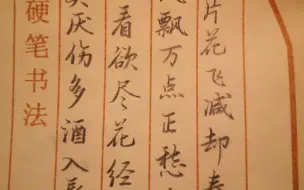 片花飞减却春
飘万点正愁
看欲尽花经
厌伤多酒入
硬笔书法